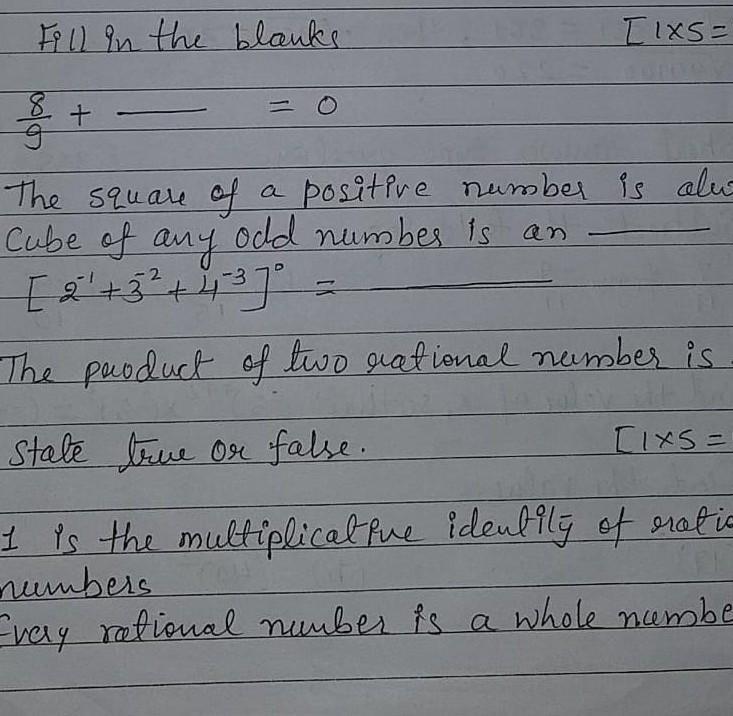 Fill in the blanks [1x5=
8/9 + ___ = 0
The square of a positive number is alw
Cube of any odd number is an ___
[2⁻¹+3⁻²+4⁻³]⁰ = ___
The product of two rational number is
State true or false. [1x5=
1 is the multiplicative identity of ratio
numbers
Every rational number is a whole numbe